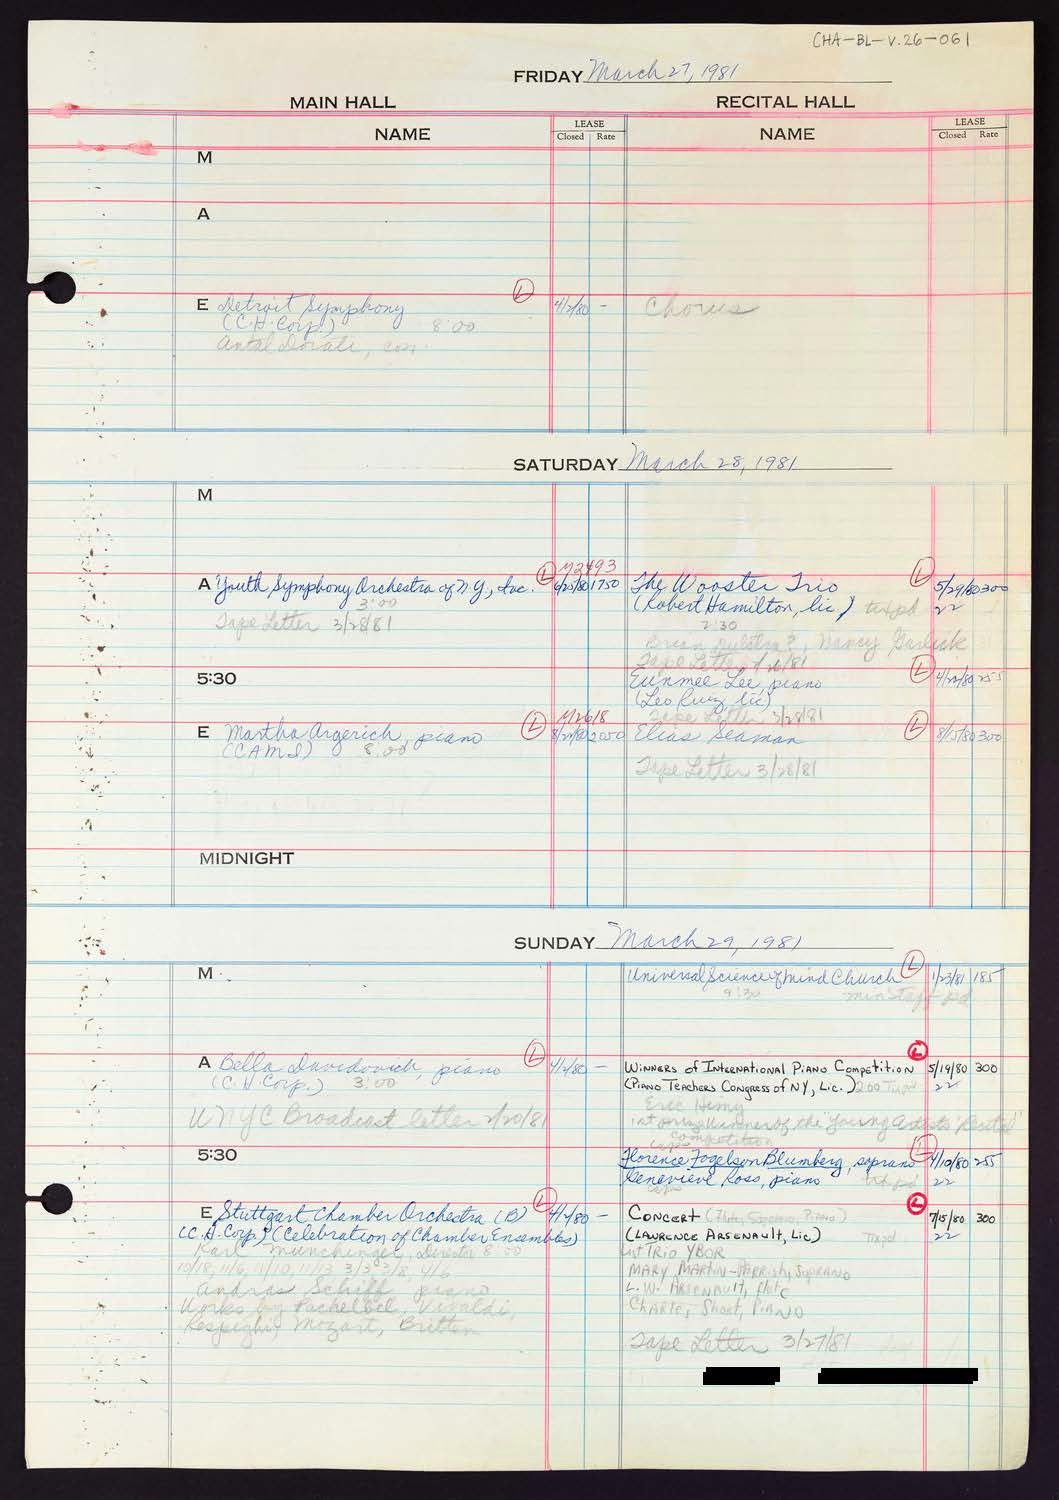 CHA-BL-V.26-061
FRIDAY March 27, 1981
MAIN HALL RECITAL HALL
NAME LEASE Closed Rate NAME LEASE Closed Rate
M
A
E Detroit Symphony L 4/2/80 - Chorus
(C.H. Corp.) 8:00
Antal Dorati, con.
SATURDAY March 28, 1981
M
A Youth Symphony Orchestra of NY, Inc. L 1750
3:00
Tape Letter 3/28/81
The Wooster Trio L 5/29/80 300
(Robert Hamilton, lic) txt pd 22
2:30
Nancy Garlick
Tape Letter
5:30
Eunmee Lee, piano L 255
(Leo Ruiz, lic)
Tape Letter 3/28/81
E Martha Argerich, piano L 2050
(CAMI) 8:00
Elias Seaman L 8/15/80 300
Tape Letter 3/28/81
MIDNIGHT
SUNDAY March 29, 1981
M
Universal Science of Mind Church L 1/23/81 185
9:30 pd
A Bella Davidovich, piano L 4/1/80 -
(C.H. Corp.) 3:00
WNYC Broadcast letter 2/20/81
Winners of International Piano Competition L 5/19/80 300
(Piano Teachers Congress of NY, Lic.) 2:00 Tix pd 22
Eric Himy
winner of the "Young Artists' Recital"
competition
5:30
Florence Fogelson Blumberg, soprano L 4/10/80 255
Genevieve Ross, piano txt pd 22
E Stuttgart Chamber Orchestra (B) L 4/1/80 -
(C.H. Corp) (Celebration of Chamber Ensembles)
Karl Munchinger, Director 8:00
10/18, 11/6, 11/10, 11/13, 3/3, 3/8, 4/6
Andras Schiff, piano
Works by Pachelbel, Vivaldi,
Respighi, Mozart, Britten
Concert (Flute, Soprano, Piano) L 7/15/80 300
(Lawrence Arsenault, Lic) Tix pd 22
Trio YBOR
Mary Martin-Parrish, Soprano
L.W. Arsenault, flute
Charles Short, Piano
Tape Letter 3/27/81